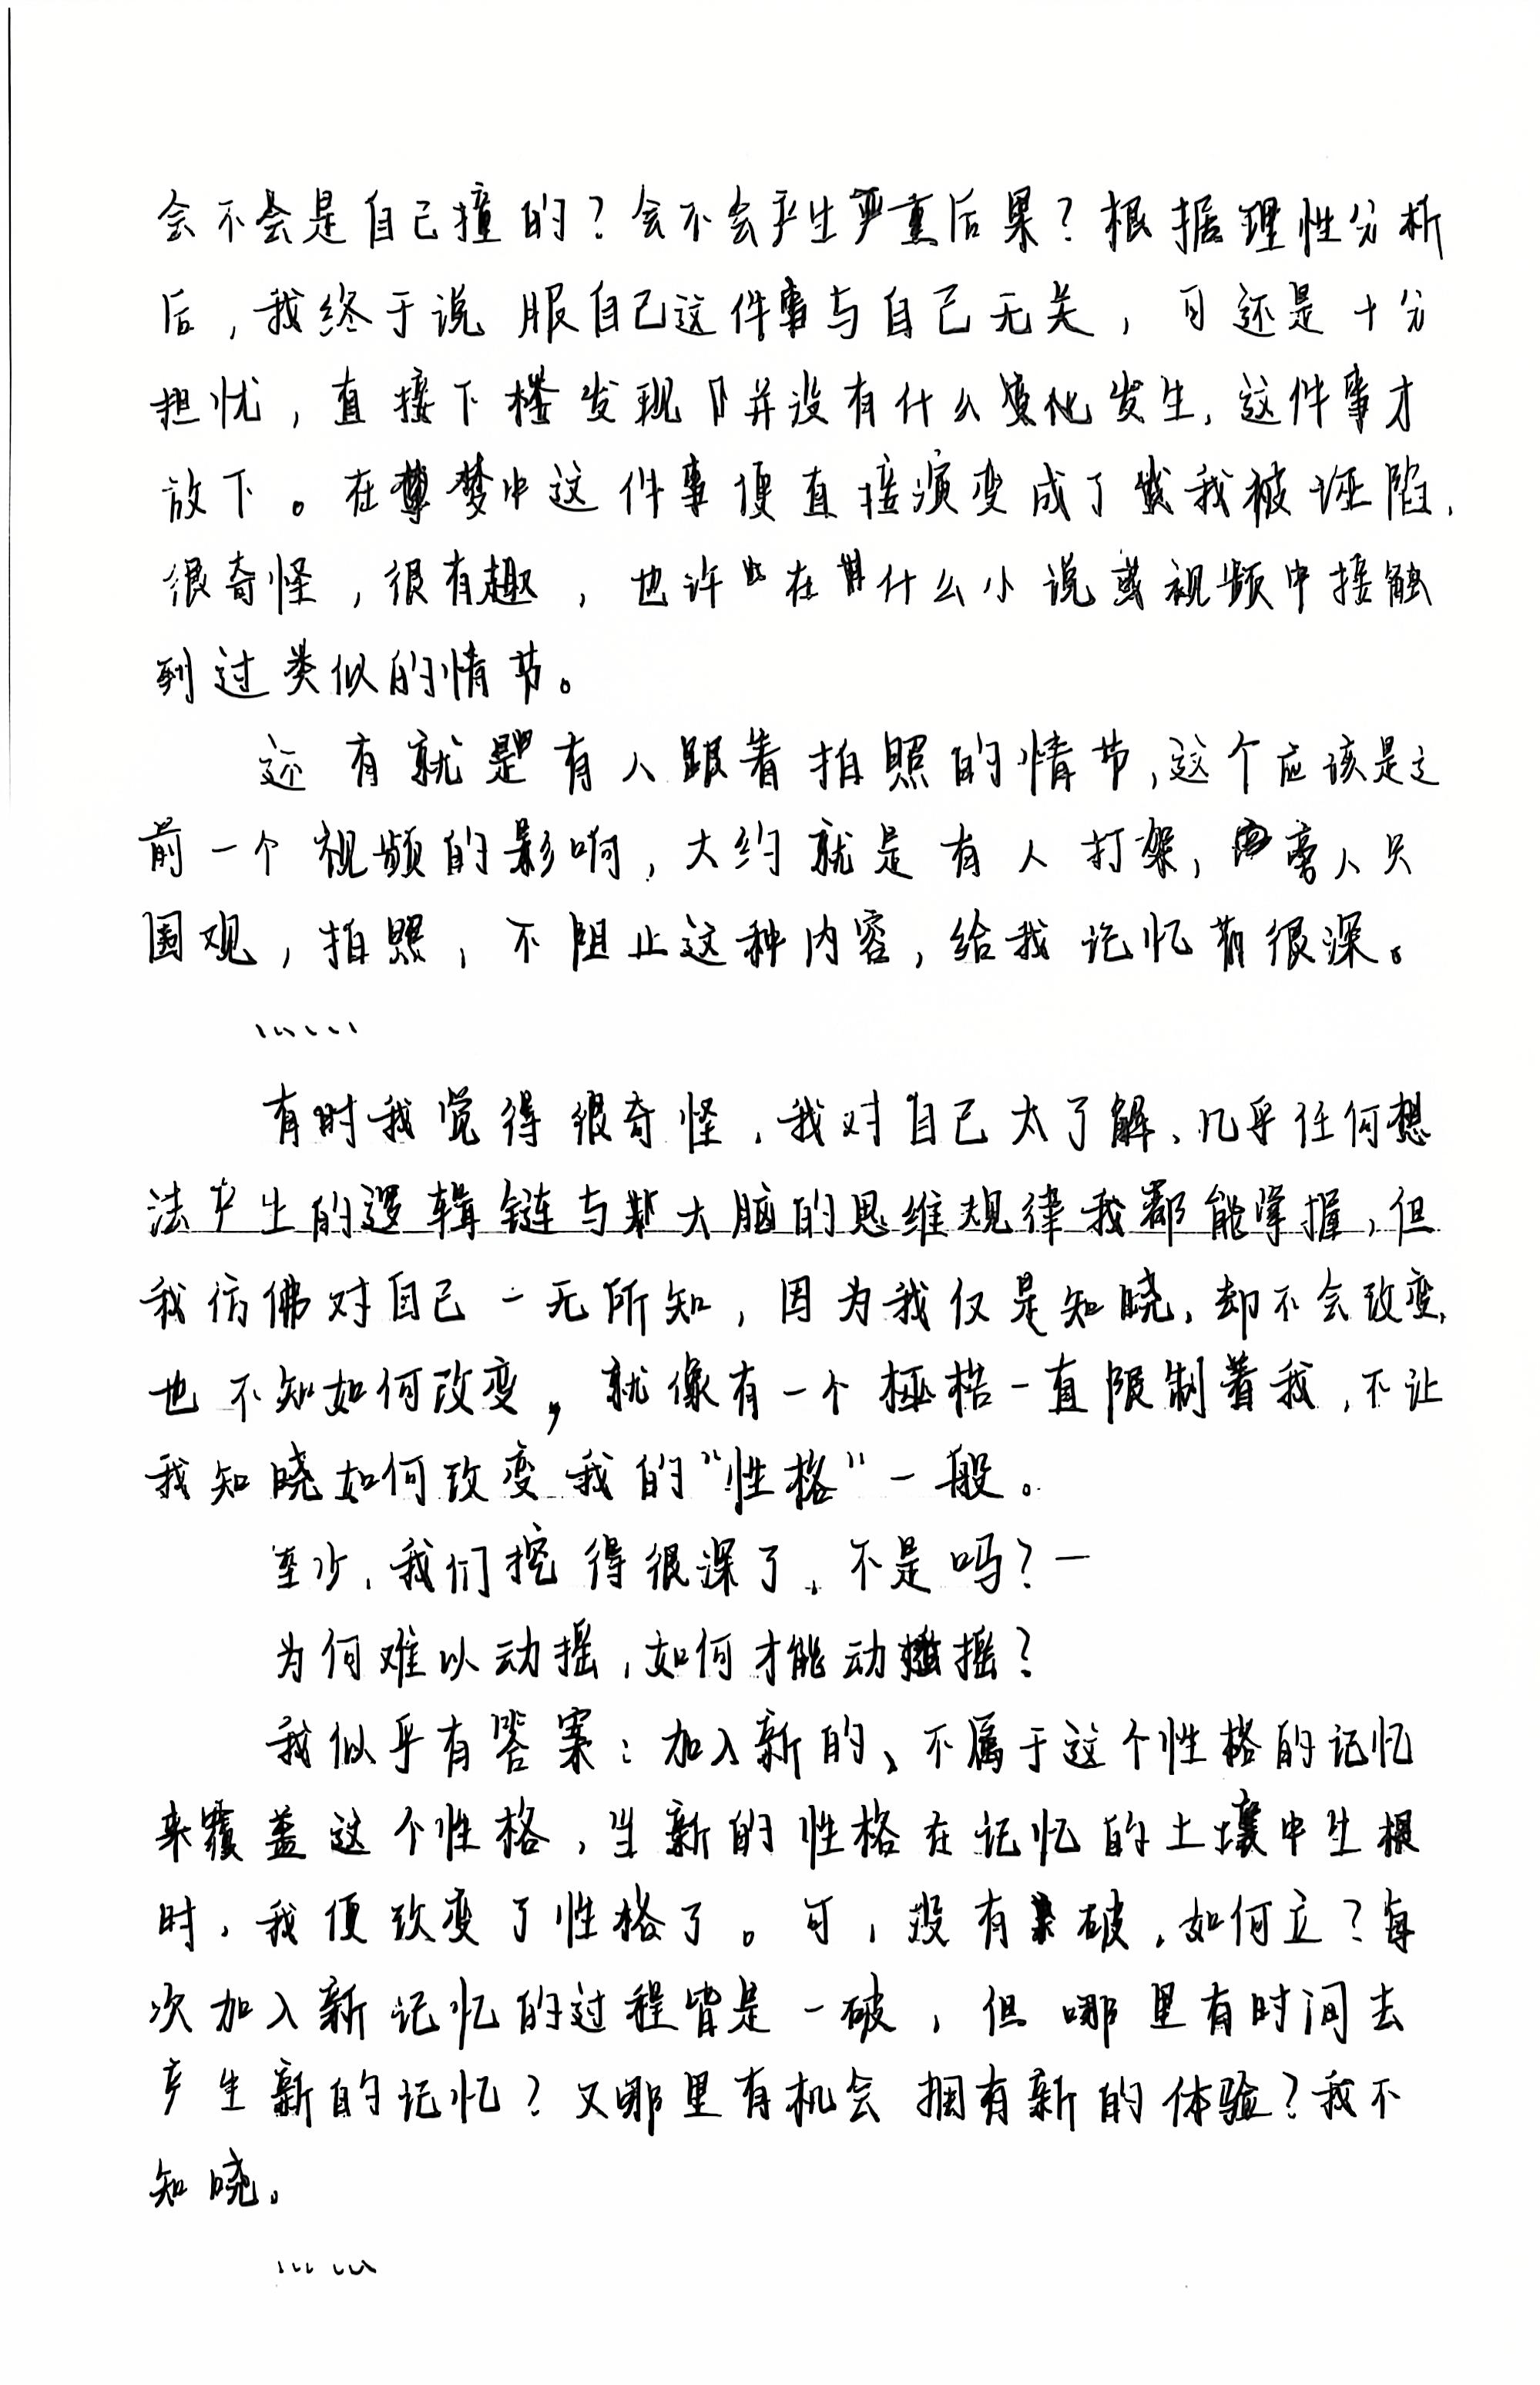 会不会是自己撞的？会不会产生严重后果？根据理性分析
后，我终于说服自己这件事与自己无关，可还是十分
担忧，直接下楼发现并没有什么变化发生，这件事才
放下。在梦中这件事便直接演变成了我被诬陷，
很奇怪，很有趣，也许在什么小说或视频中接触
到过类似的情节。
还有就是有人跟着拍照的情节，这个应该是之
前一个视频的影响，大约就是有人打架，旁人只
围观，拍照，不阻止这种内容，给我记忆很深。
……
有时我觉得很奇怪，我对自己太了解、几乎任何想
法产生的逻辑链与大脑的思维规律我都能掌握，但
我仿佛对自己一无所知，因为我仅是知晓，却不会改变，
也不知如何改变，就像有一个桎梏一直限制着我，不让
我知晓如何改变我的“性格”一般。
至少，我们挖得很深了，不是吗？—
为何难以动摇，如何才能动摇？
我似乎有答案：加入新的、不属于这个性格的记忆
来覆盖这个性格，当新的性格在记忆的土壤中生根
时，我便改变了性格了。可，没有破，如何立？每
次加入新记忆的过程皆是一破，但哪里有时间去
产生新的记忆？又哪里有机会拥有新的体验？我不
知晓。
……